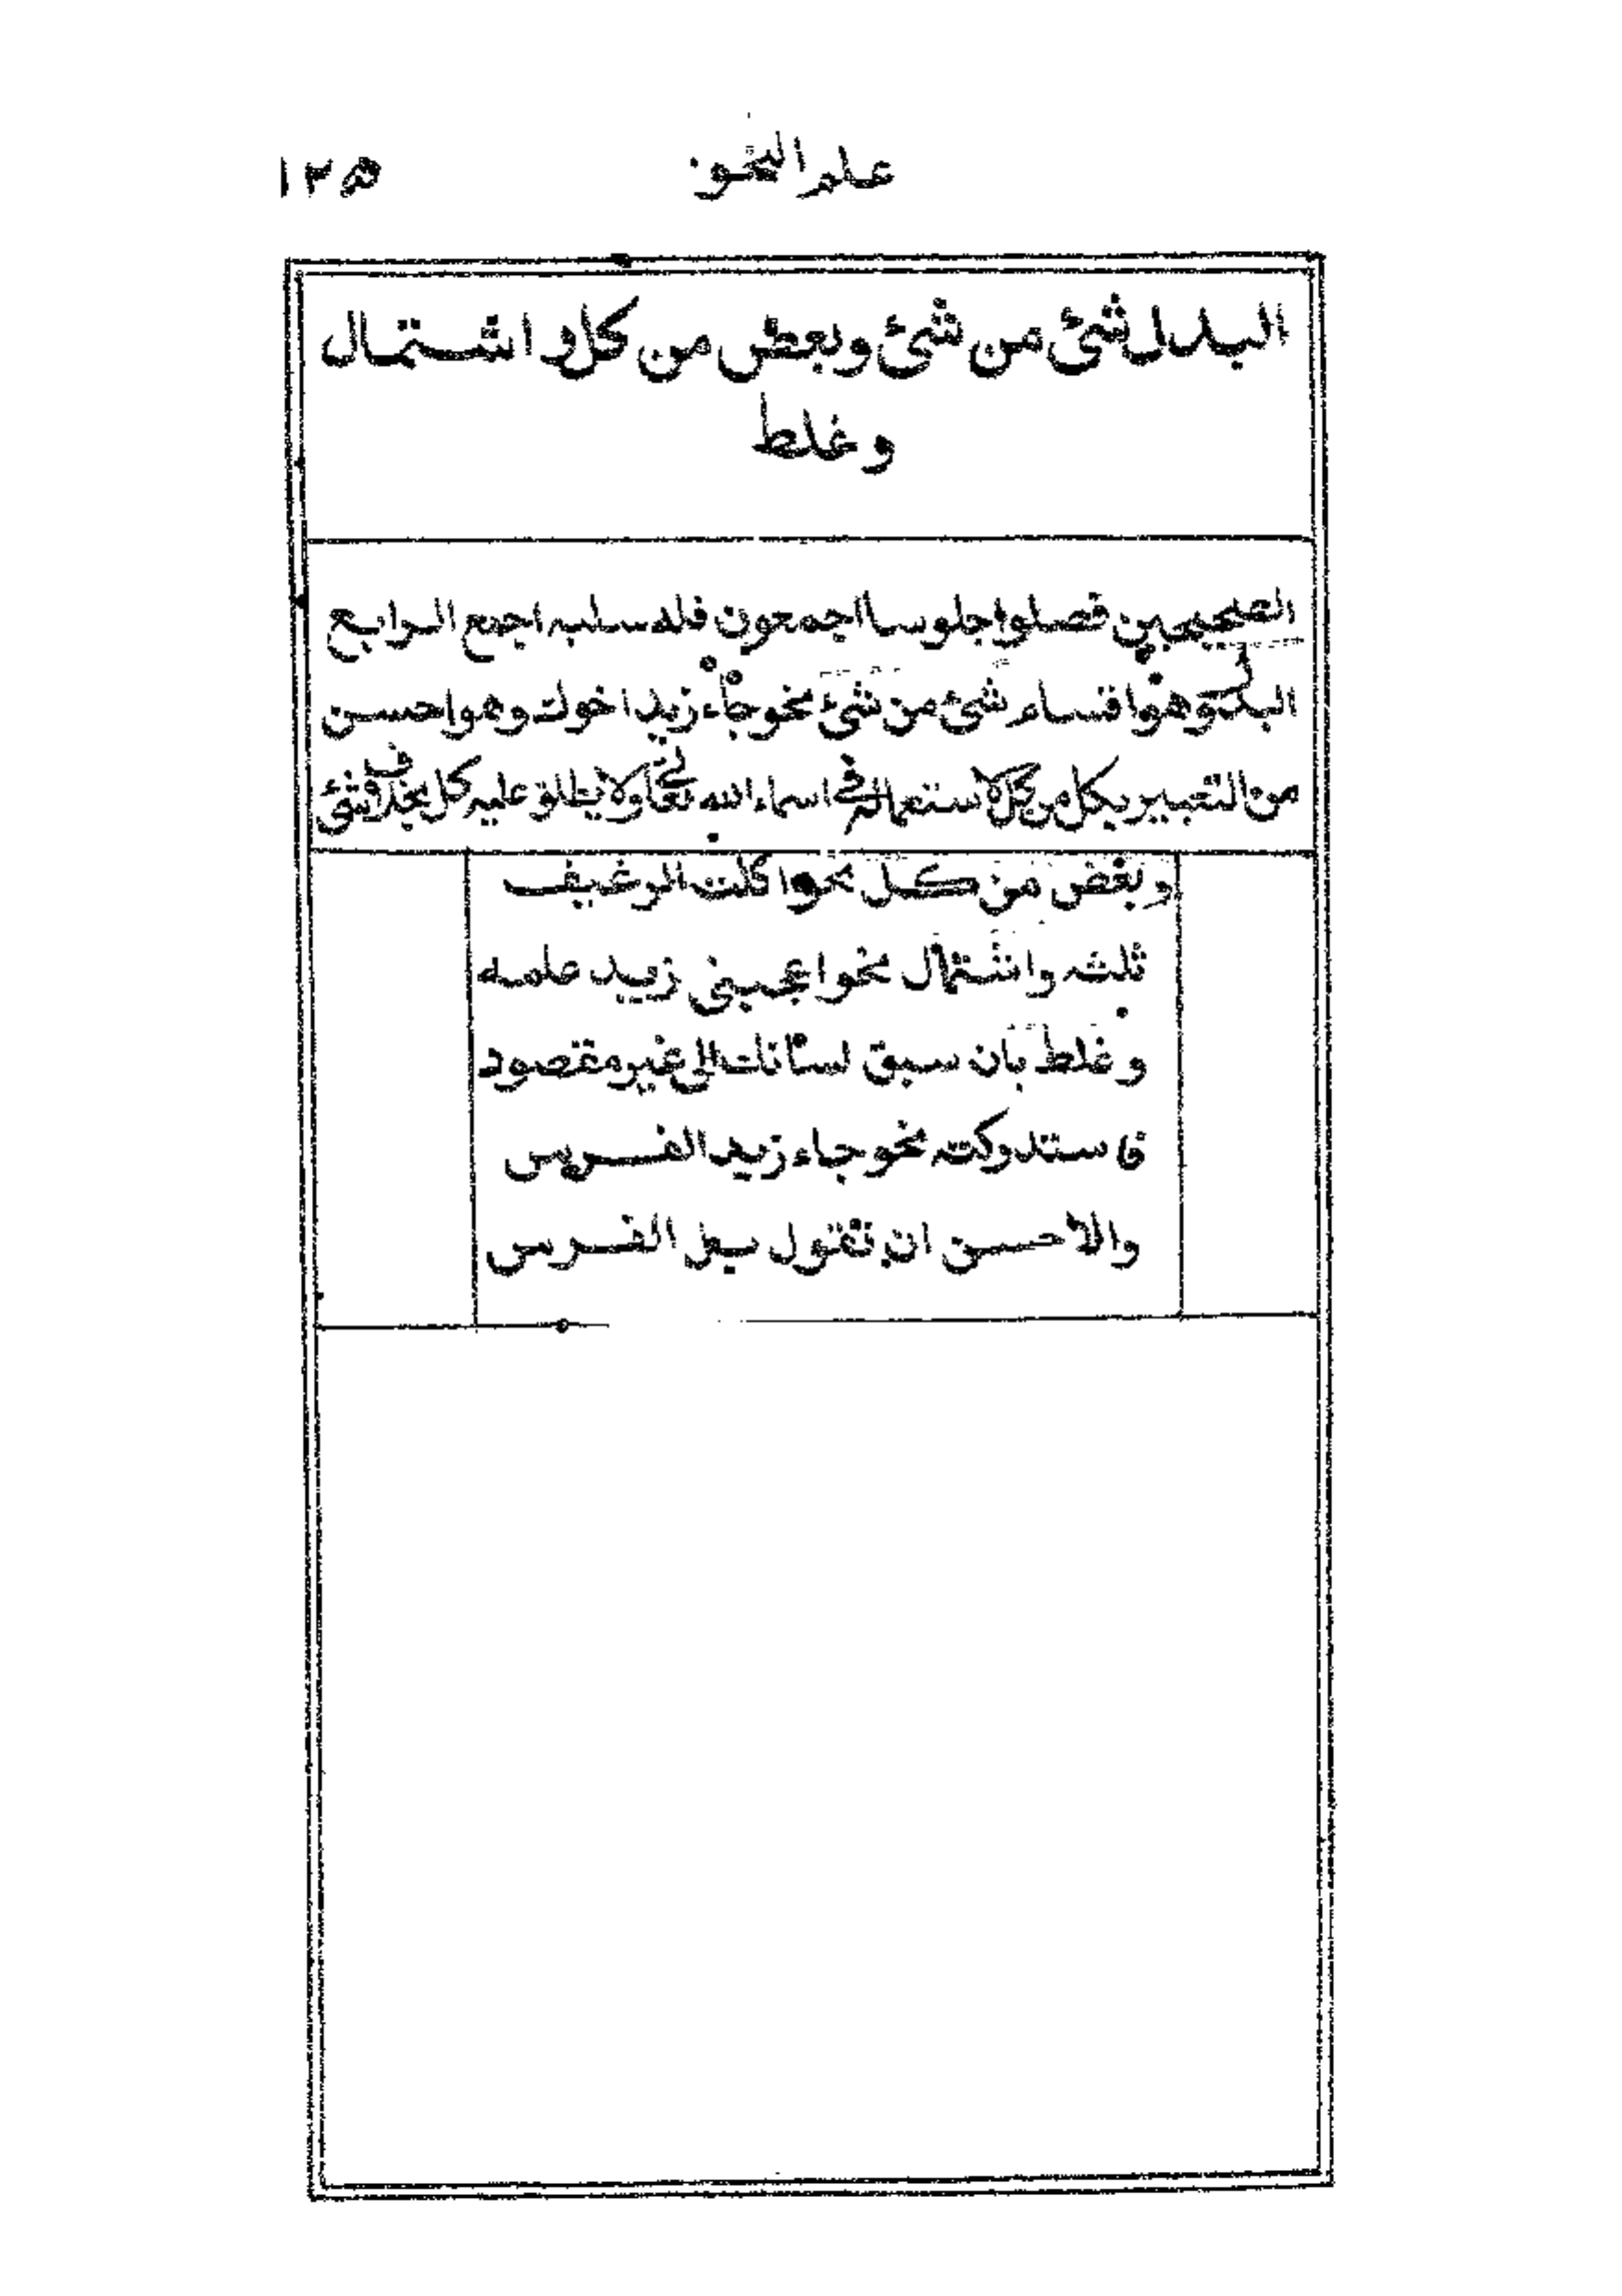 علم النحو ١٢٥
البدل شئ من شئ وبعض من كل واشتمال
وغلط
الصحيحين فصلوا جلوسا اجمعون فله سلبه اجمع الرابع
البدل وهو اقسام شئ من شئ نحو جاء زيد اخوك وهو احسن
من التعبير بكل من كل لاستعماله في اسماء الله تعالى ولا يطلق عليه كل بخلاف شئ
وبعض من كل نحو اكلت الرغيف
ثلثه واشتمال نحو اعجبني زيد علمه
وغلط بان سبق لسانك الى غير مقصود
فاستدركته نحو جاء زيد الفرس
والاحسن ان تقول بل الفرس